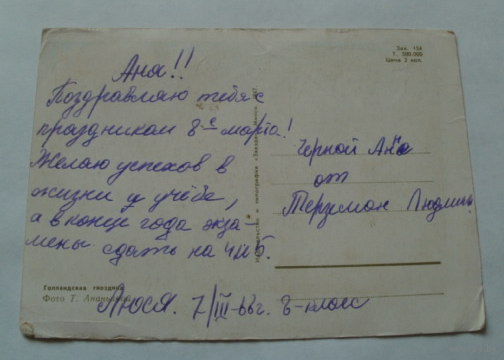 Аня!!
Поздравляю тебя с
праздником 8-е марта!
Желаю успехов в
жизни и учёбе,
а в конце года экза-
мены сдать на 4 и 5.
Люся. 7/III-66г. 6-класс
Зак. 154
Т. 500.000
Цена 2 коп.
Черной Ане
от
Терзиман Людмил.
Голландская гвоздика
Фото Т.